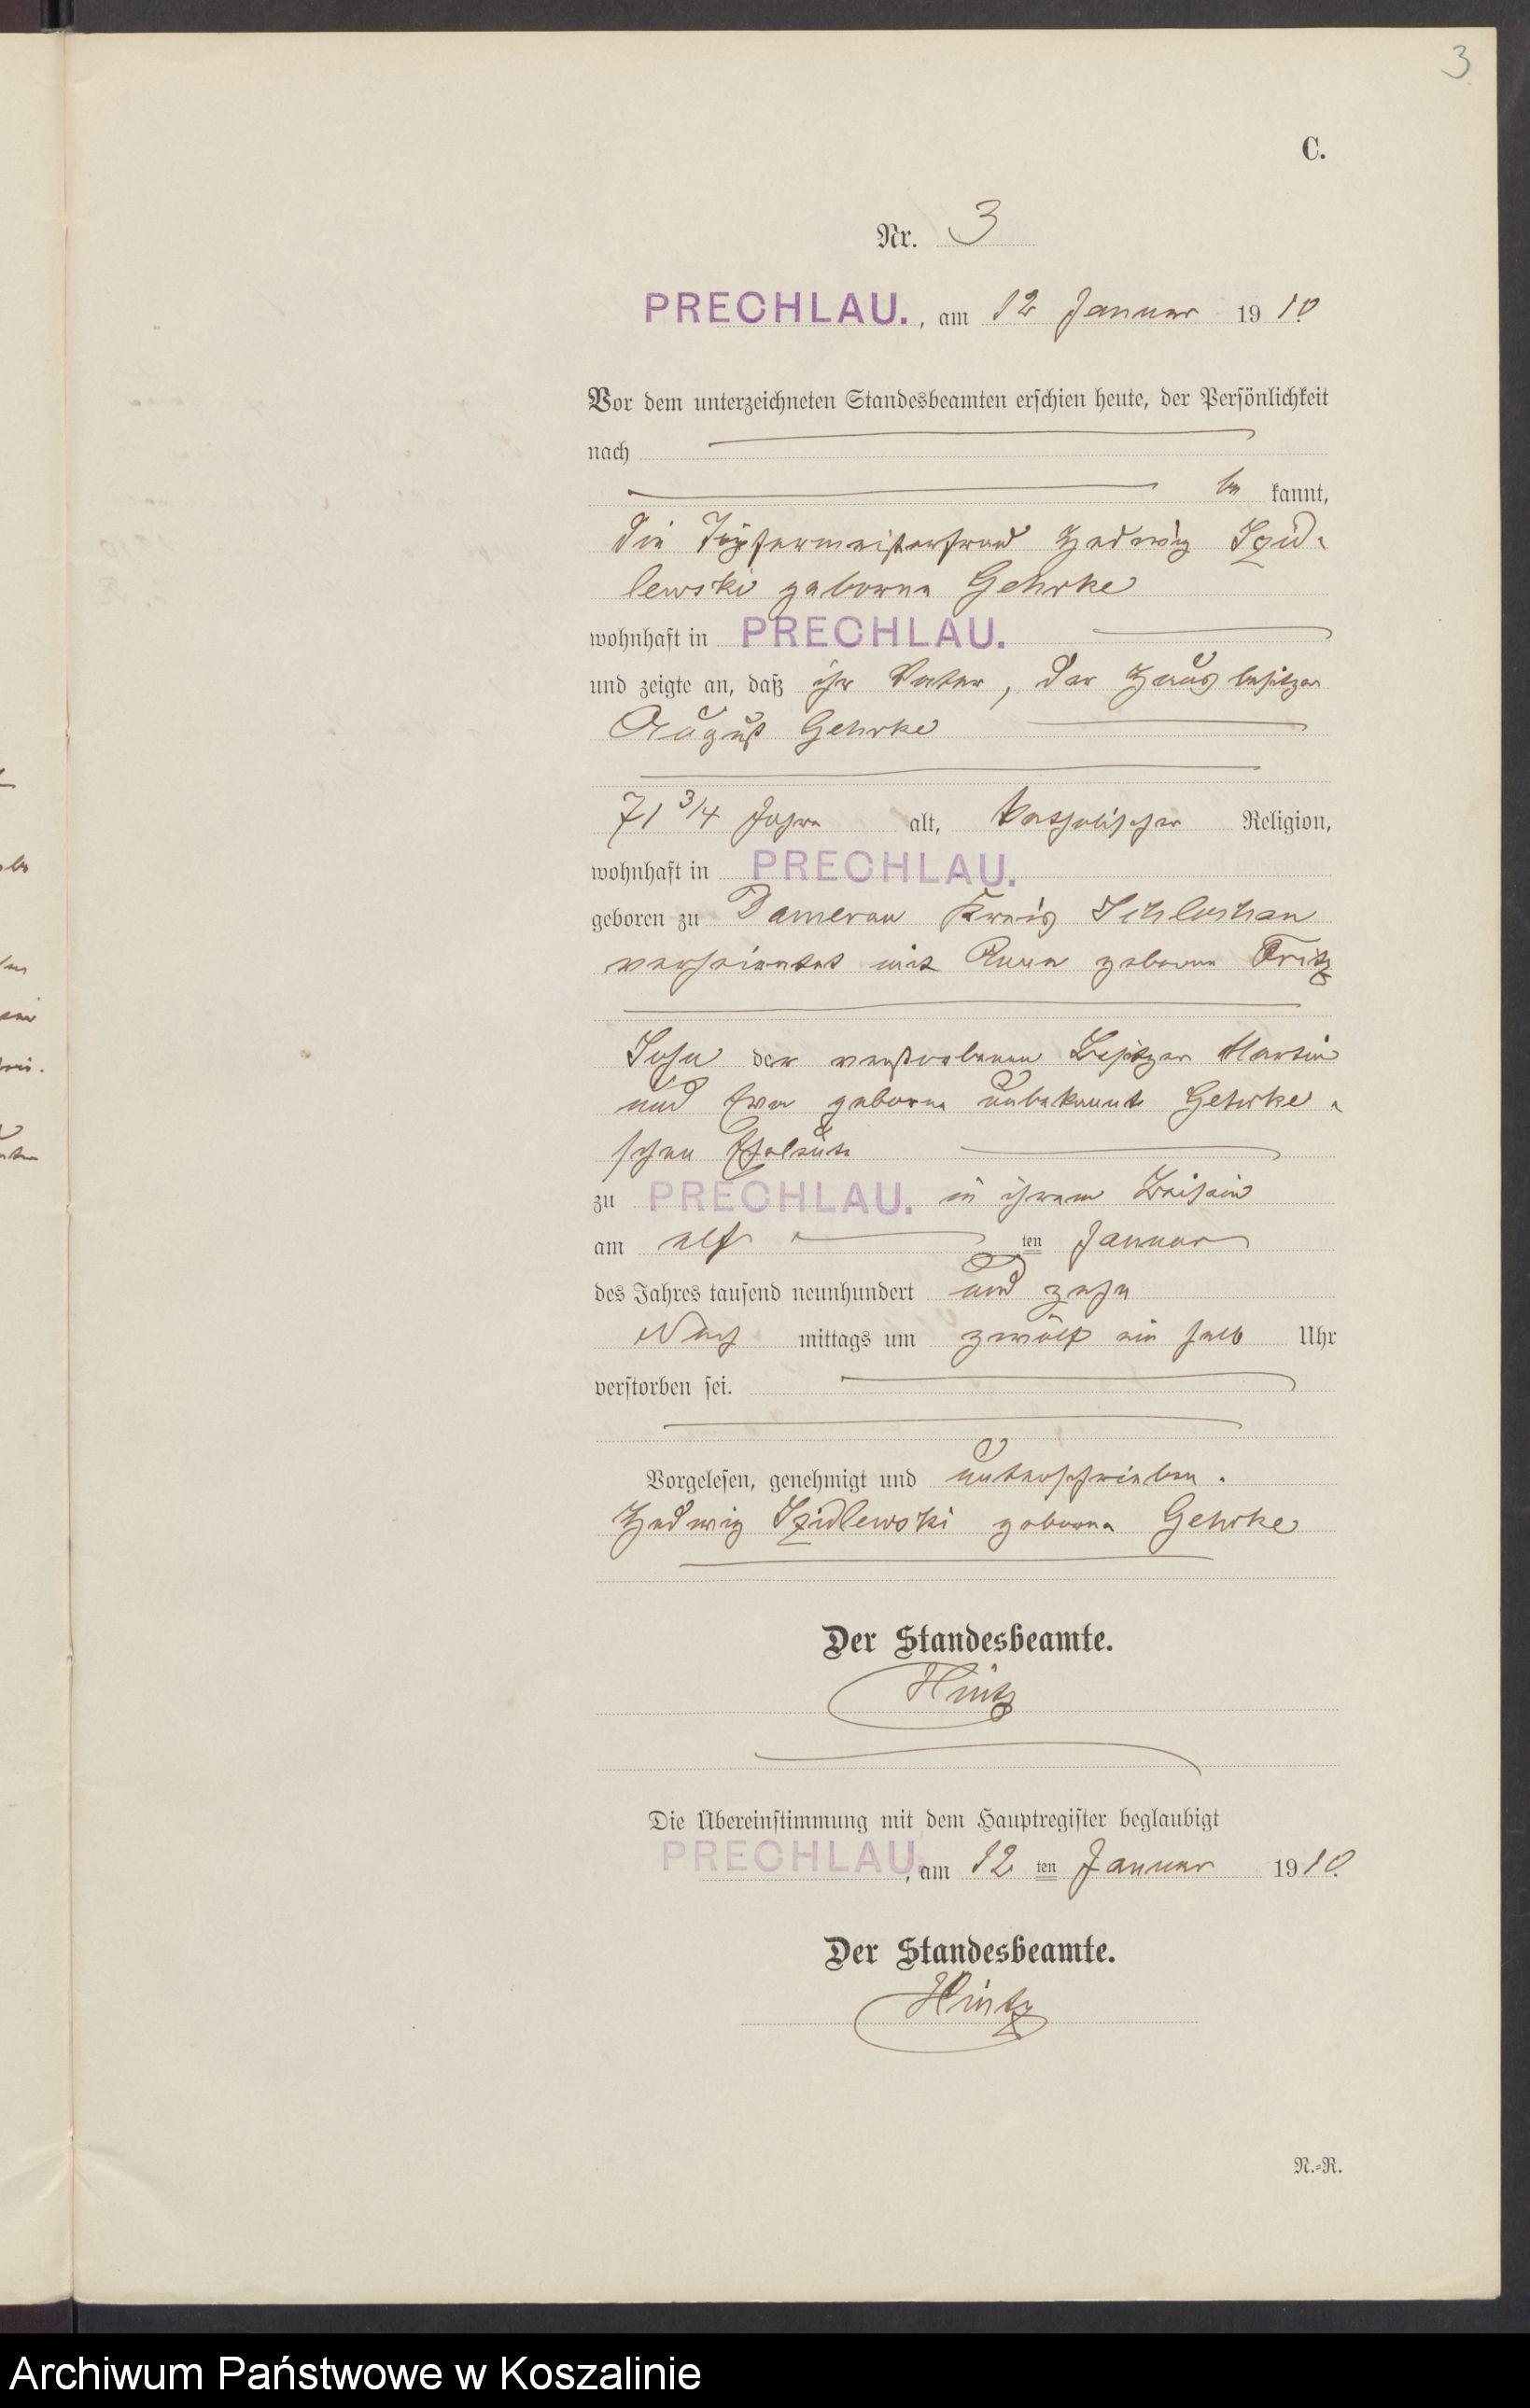 3
C.
Nr. 3
PRECHLAU., am 12 Januar 1910
Vor dem unterzeichneten Standesbeamten erschien heute, der Persönlichkeit
nach
be kannt,
die Töpfermeisterfrau Hedwig Szid-
lewski geborne Gehrke
wohnhaft in PRECHLAU.
und zeigte an, daß ihr Vater, der Hausbesitzer
August Gehrke
71 3/4 Jahre alt, katholischer Religion,
wohnhaft in PRECHLAU.
geboren zu Damerau Kreis Schlochau
verheiratet mit Anna geborne Fritz
Sohn der verstorbenen Besitzer Martin
und Eva geborne unbekannt Gehrke-
schen Eheleute
zu PRECHLAU. in ihrem Beisein
am elf ten Januar
des Jahres tausend neunhundert und zehn
Nach mittags um zwölf ein halb Uhr
verstorben sei.
Vorgelesen, genehmigt und unterschrieben.
Hedwig Szidlewski geborne Gehrke
Der Standesbeamte.
Hintz
Die Übereinstimmung mit dem Hauptregister beglaubigt
PRECHLAU, am 12 ten Januar 1910.
Der Standesbeamte.
Hintz
N.-R.
Archiwum Państwowe w Koszalinie